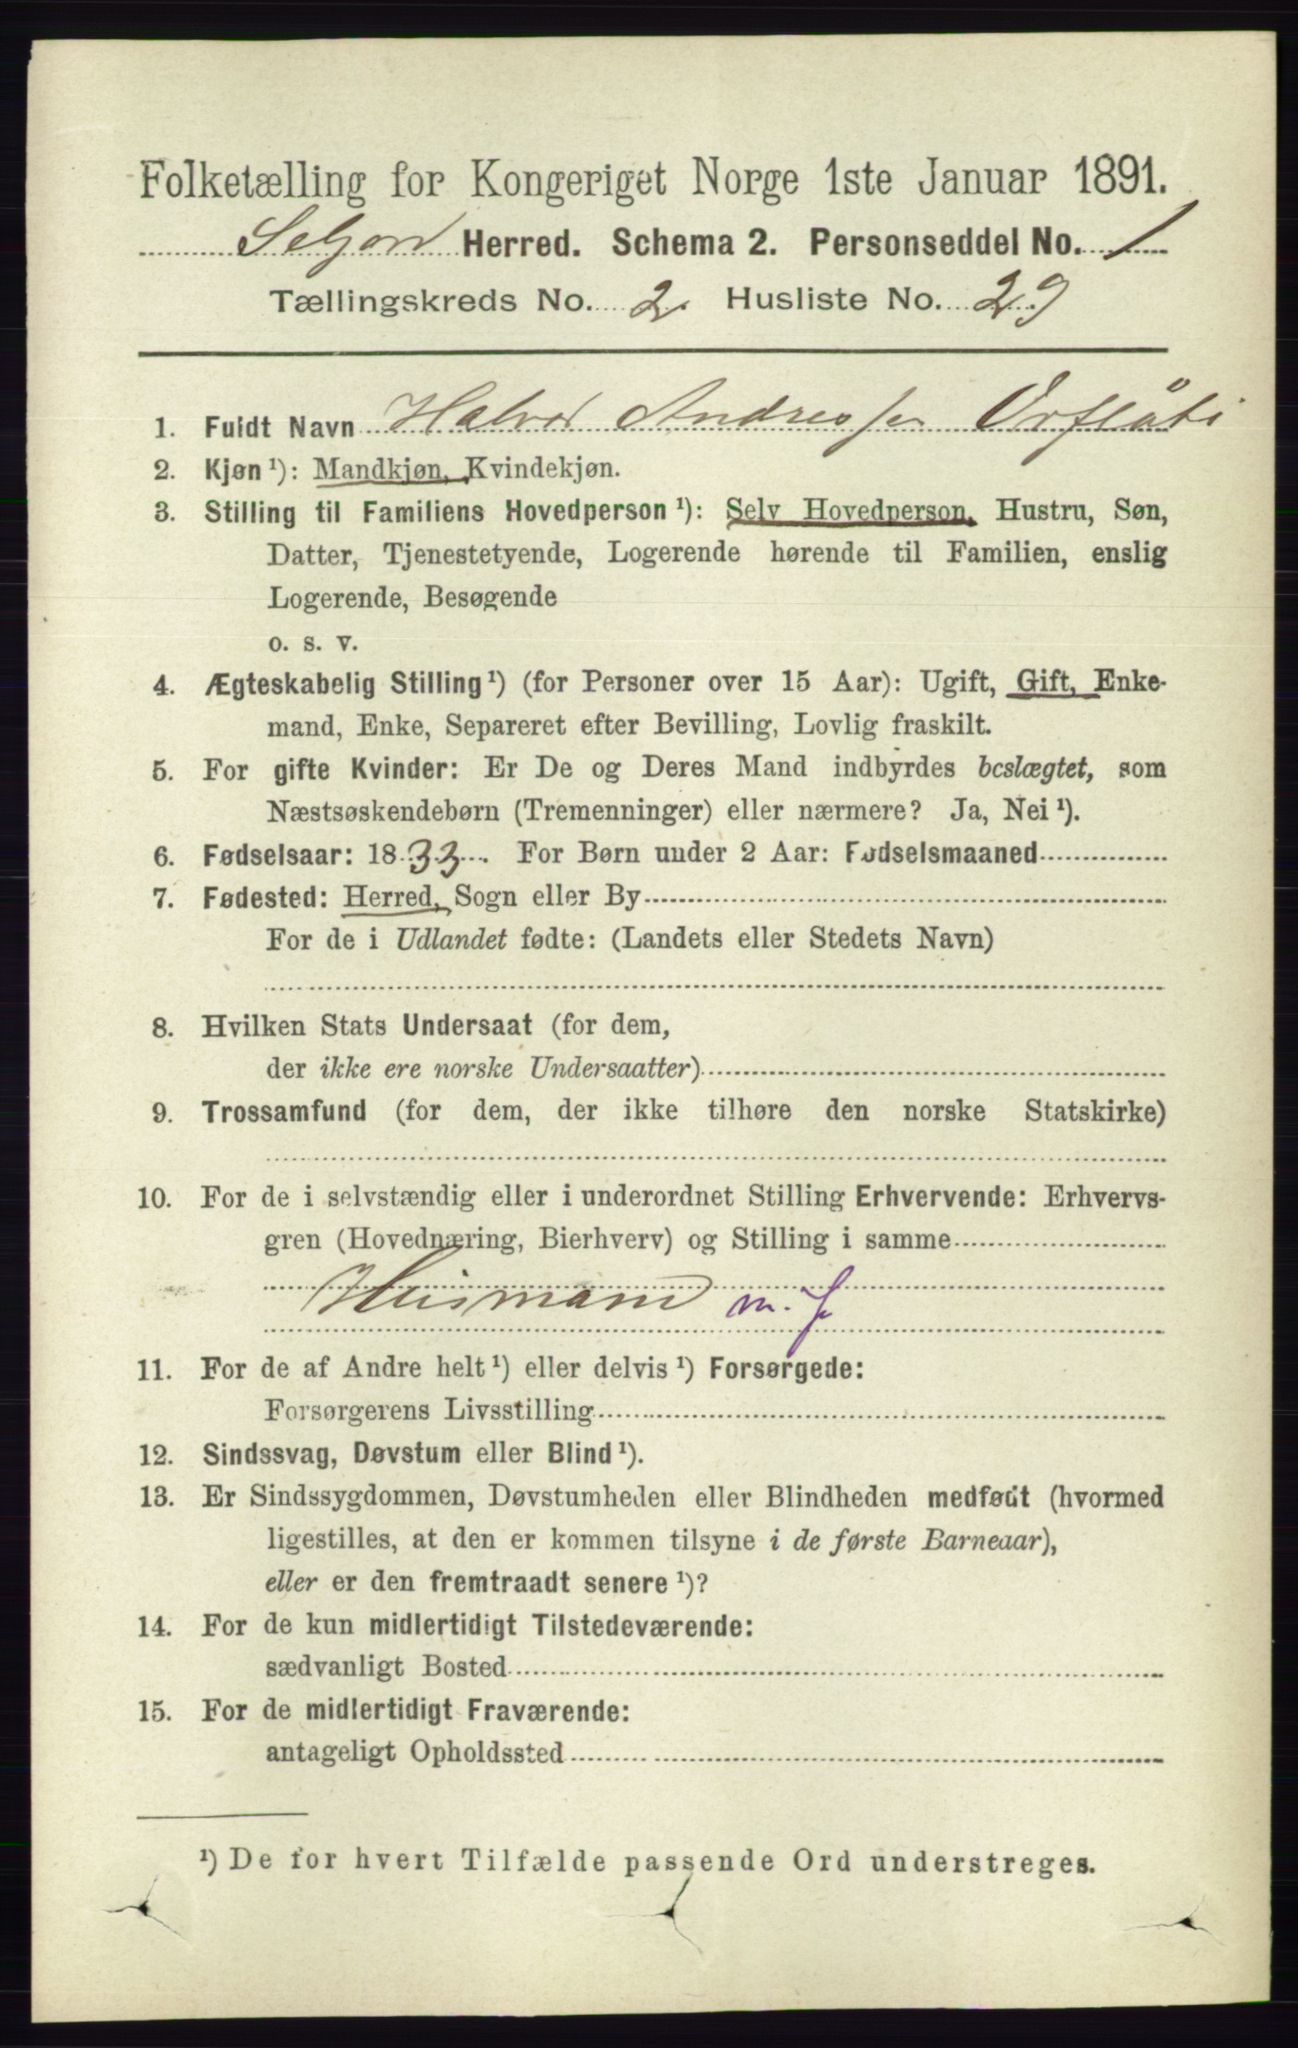 Folketælling for Kongeriget Norge 1ste Januar 1891.
Seljord Herred. Schema 2. Personseddel No. 1
Tællingskreds No. 2. Husliste No. 29
1. Fuldt Navn Halvor Andressen Orflåti
2. Kjøn ¹): Mandkjøn, Kvindekjøn.
3. Stilling til Familiens Hovedperson ¹): Selv Hovedperson, Hustru, Søn,
Datter, Tjenestetyende, Logerende hørende til Familien, enslig
Logerende, Besøgende
o. s. v.
4. Ægteskabelig Stilling ¹) (for Personer over 15 Aar): Ugift, Gift, Enke-
mand, Enke, Separeret efter Bevilling, Lovlig fraskilt.
5. For gifte Kvinder: Er De og Deres Mand indbyrdes beslægtet, som
Næstsøskendebørn (Tremenninger) eller nærmere? Ja, Nei ¹).
6. Fødselsaar: 1833. For Børn under 2 Aar: Fødselsmaaned
7. Fødested: Herred, Sogn eller By
For de i Udlandet fødte: (Landets eller Stedets Navn)
8. Hvilken Stats Undersaat (for dem,
der ikke ere norske Undersaatter)
9. Trossamfund (for dem, der ikke tilhøre den norske Statskirke)
10. For de i selvstændig eller i underordnet Stilling Erhvervende: Erhvervs-
gren (Hovednæring, Bierhverv) og Stilling i samme
Husmand m. J
11. For de af Andre helt ¹) eller delvis ¹) Forsørgede:
Forsørgerens Livsstilling
12. Sindssvag, Døvstum eller Blind ¹).
13. Er Sindssygdommen, Døvstumheden eller Blindheden medfødt (hvormed
ligestilles, at den er kommen tilsyne i de første Barneaar),
eller er den fremtraadt senere ¹)?
14. For de kun midlertidigt Tilstedeværende:
sædvanligt Bosted
15. For de midlertidigt Fraværende:
antageligt Opholdssted
¹) De for hvert Tilfælde passende Ord understreges.